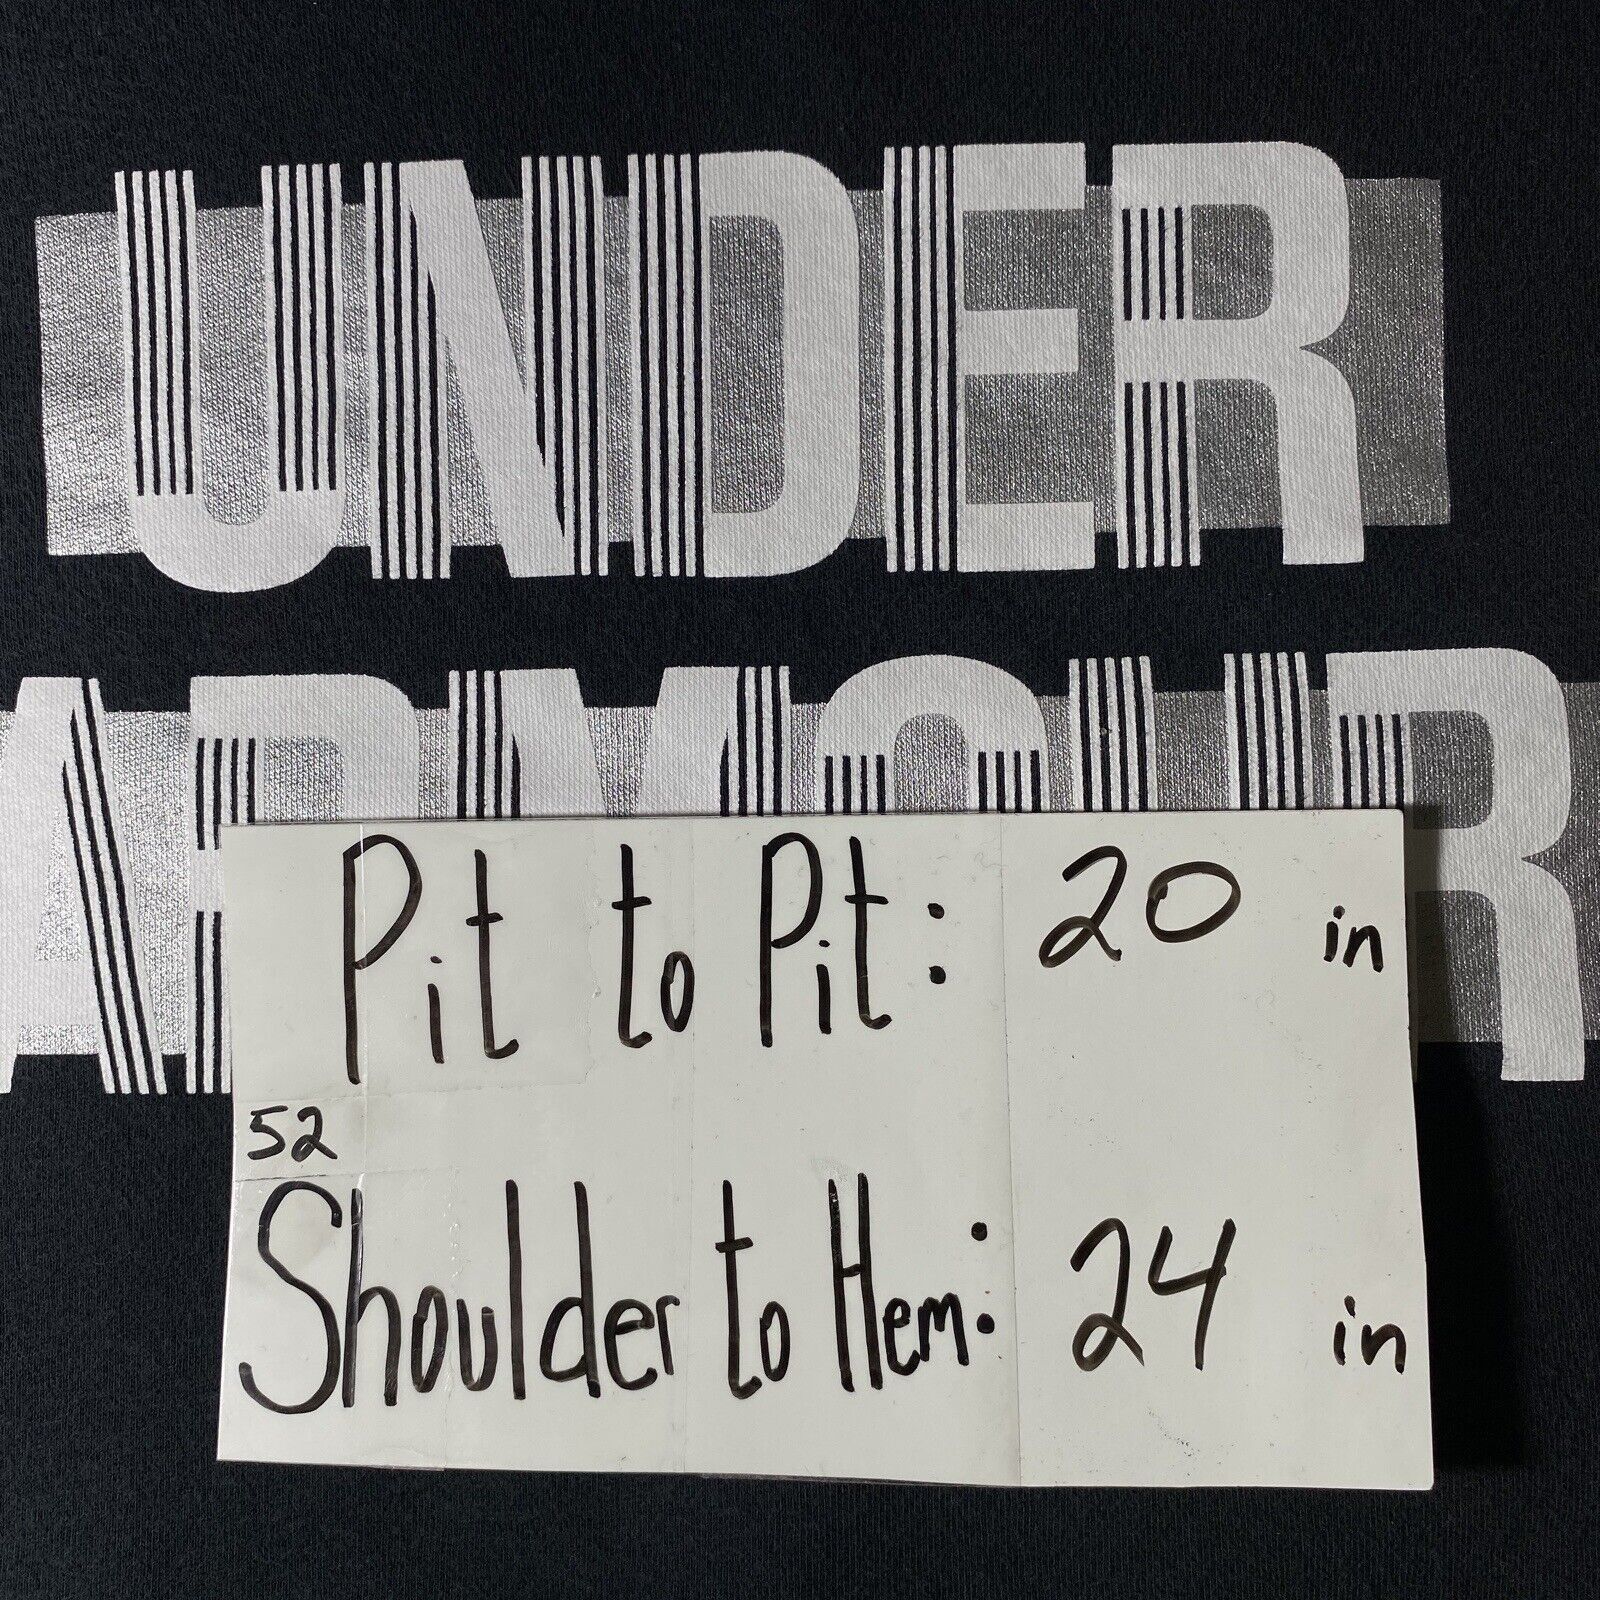 UNDER
ARMOUR
Pit to Pit: 20 in
52
Shoulder to Hem: 24 in